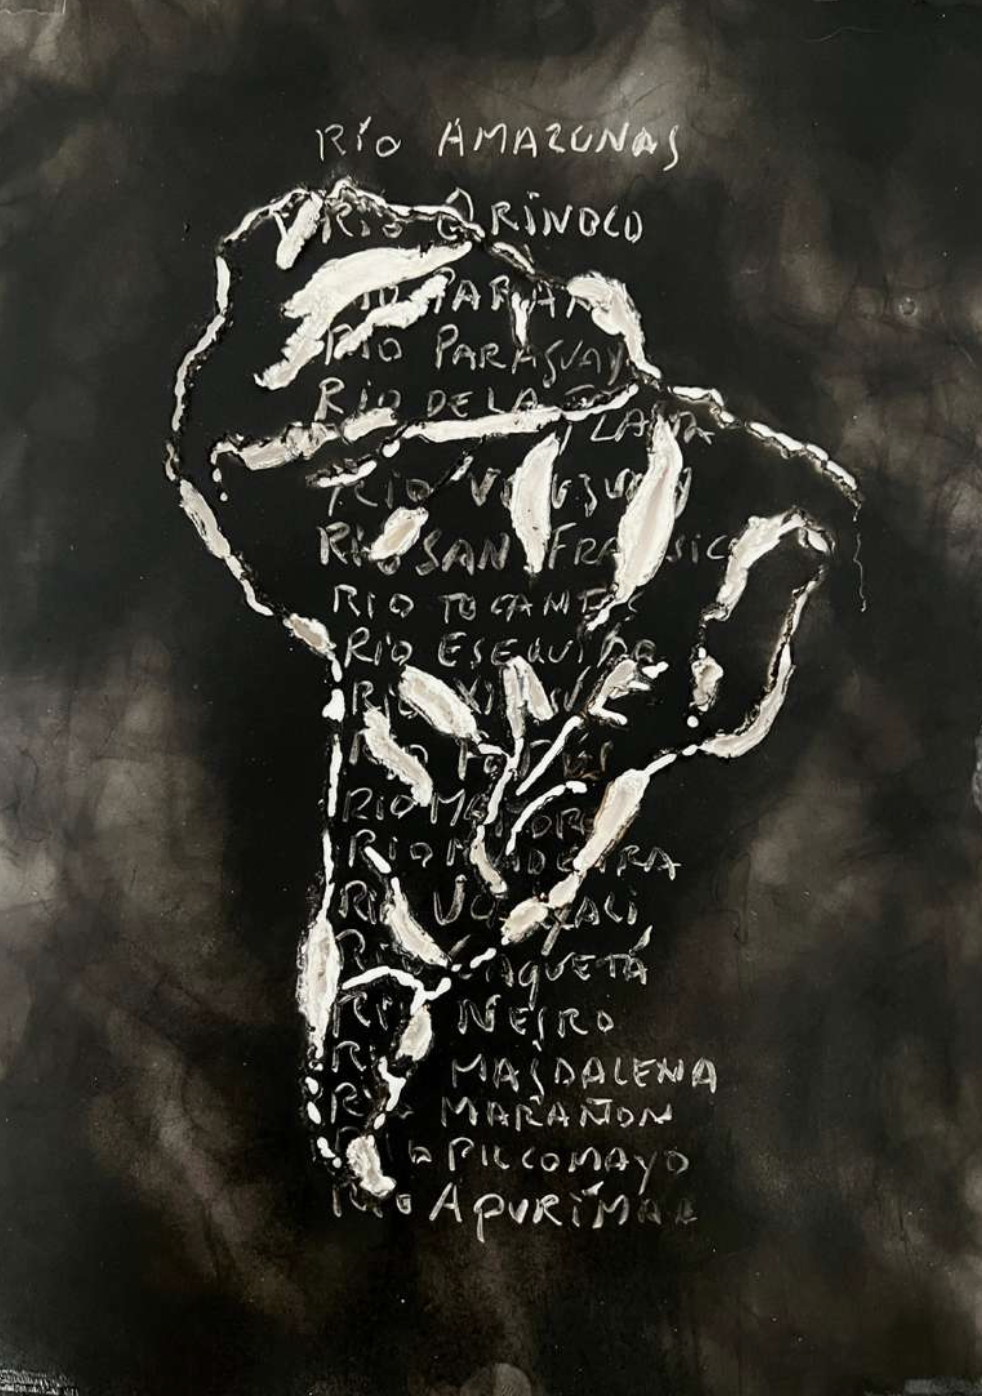 RÍO AMAZONAS
RÍO ORINOCO
RÍO PARANÁ
RÍO PARAGUAY
RÍO DE LA
PLATA
RIO URUGUAY
RÍO SAN FRANSISC
RIO TOCANTI
RÍO ESEQUIBO
RÍO XINGU
RÍO
RIO MAMORÉ
RIO MADEIRA
RÍO UCAYALI
RÍO CAQUETÁ
RIO NEGRO
RÍO MAGDALENA
RÍO MARAÑON
RIO PILCOMAYO
RÍO APURÍMAC